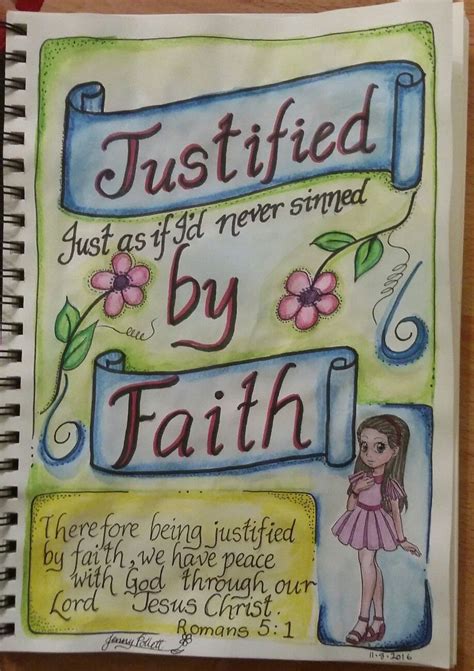 Justified
Just as if I'd never sinned
by
Faith
Therefore being justified
by faith, we have peace
with God through our
Lord Jesus Christ.
Romans 5:1